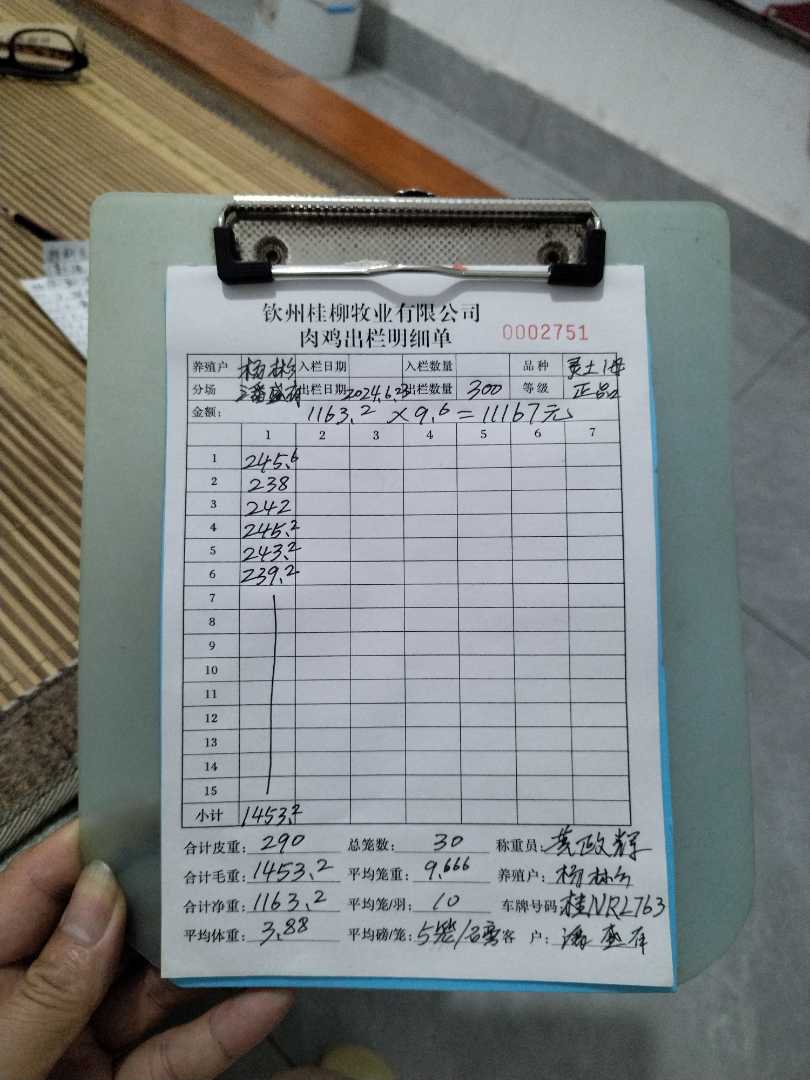 钦州桂柳牧业有限公司
肉鸡出栏明细单 0002751
养殖户 杨林 入栏日期 入栏数量 品种 灵土1母
分场 潘盛 出栏日期 2024.6.23 出栏数量 300 等级 正品
金额: 1163.2 × 9.6 = 11167元
1 2 3 4 5 6 7
1 245.6
2 238
3 242
4 245.2
5 243.2
6 239.2
7
8
9
10
11
12
13
14
15
小计 1453.2
合计皮重: 290 总笼数: 30 称重员: 黄政辉
合计毛重: 1453.2 平均笼重: 9.666 养殖户: 杨林
合计净重: 1163.2 平均笼/羽: 10 车牌号码 桂NRL763
平均体重: 3.88 平均磅/笼: 5笼/ 客 户: 潘盛